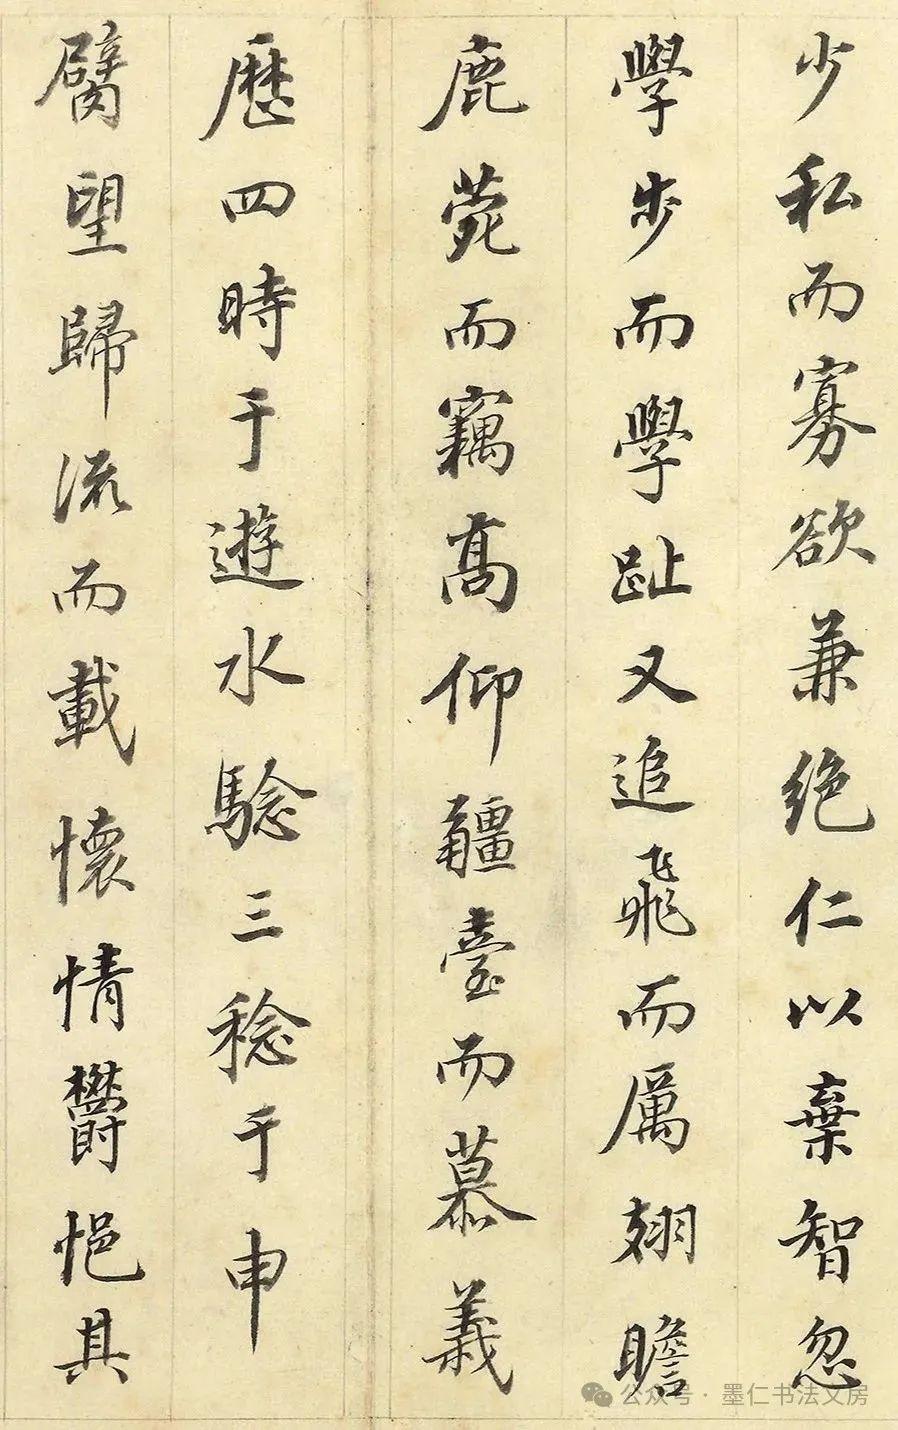 少私而寡欲兼絶仁以棄智忽
學步而學趾又追飛而厲翅瞻
鹿菀而竊高仰疆臺而慕義
歷四時于遊水驗三稔于申
臂望歸流而載懷情欝悒其
公众号·墨仁书法文房